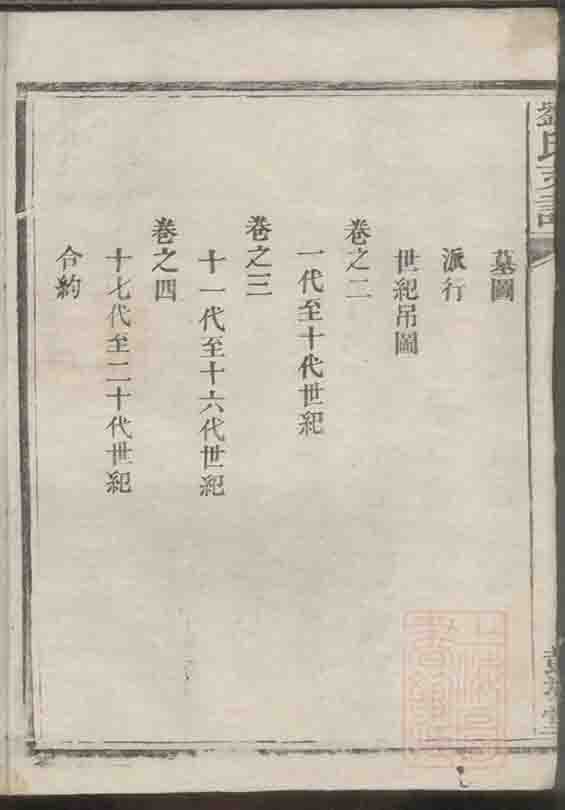 劉氏支譜
墓圖
派行
世紀吊圖
卷之二
一代至十代世紀
卷之三
十一代至十六代世紀
卷之四
十七代至二十代世紀
合約